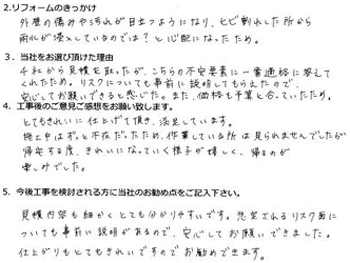 2.リフォームのきっかけ
外壁の傷みや汚れが目立つようになり、ヒビ割れした所から
雨水が浸入しているのでは?と心配になったため。
3．当社をお選び頂けた理由
千社から見積を取ったが、こちらの不安要素に一番適格に答えて
くれたため。リスクについても事前に説明してもらえたので、
安心してお願いできると感じた。また、価格も予算と合っていたため。
4．工事後のご意見ご感想をお願い致します。
とてもきれいに仕上げて頂き、満足しています。
施工中はずっと不在だったため、作業している所は見られませんでしたが
帰宅する度、きれいになっていく様子が嬉しく、帰るのが
楽しみでした。
5．今後工事を検討される方に当社のお勧め点をご記入下さい。
見積内容も細かくとても分かりやすいです。想定されるリスク面に
ついても事前に説明があるので、安心してお願いできました。
仕上がりもとてもきれいですのでお勧めできます。